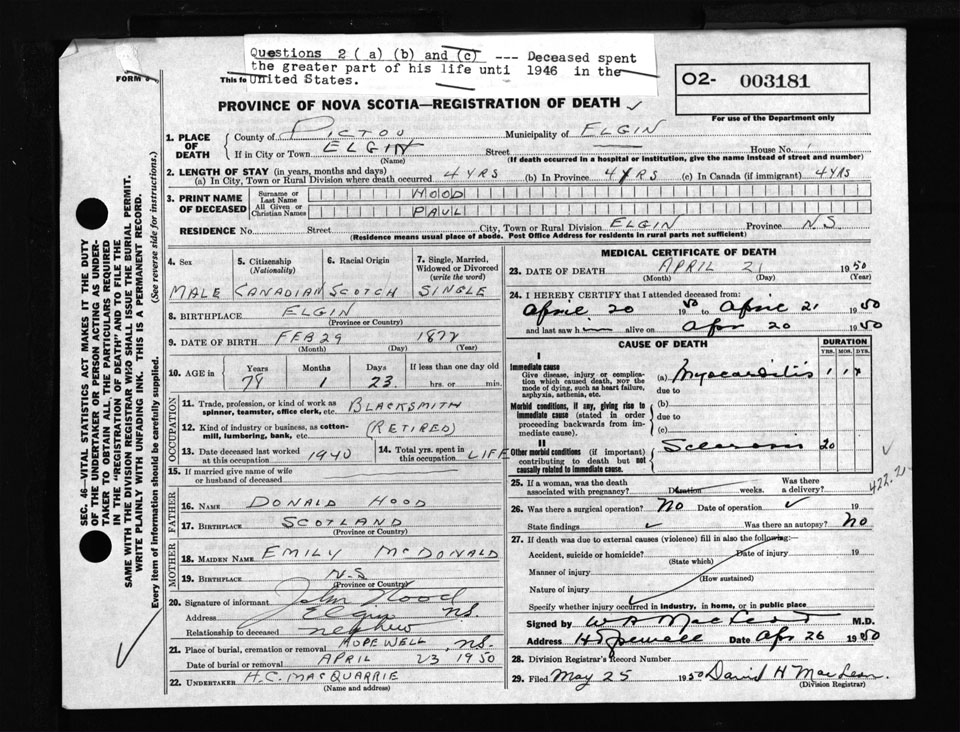 Questions 2 (a) (b) and (c) --- Deceased spent
the greater part of his life unti 1946 in the
United States.
FORM 6
This fo
O2- 003181
For use of the Department only
PROVINCE OF NOVA SCOTIA—REGISTRATION OF DEATH ✓
1. PLACE OF DEATH
County of PICTOU Municipality of ELGIN
If in City or Town ELGIN Street House No.
(Name) (If death occurred in a hospital or institution, give the name instead of street and number)
2. LENGTH OF STAY (in years, months and days)
(a) In City, Town or Rural Division where death occurred 4 YRS (b) In Province 4 YRS (c) In Canada (if immigrant) 4 YRS
3. PRINT NAME OF DECEASED
Surname or Last Name HOOD
All Given or Christian Names PAUL
RESIDENCE No. Street City, Town or Rural Division ELGIN Province N.S.
(Residence means usual place of abode. Post Office Address for residents in rural parts not sufficient)
4. Sex MALE
5. Citizenship (Nationality) CANADIAN
6. Racial Origin SCOTCH
7. Single, Married, Widowed or Divorced (write the word) SINGLE
8. BIRTHPLACE ELGIN
(Province or Country)
9. DATE OF BIRTH FEB 29 1872
(Month) (Day) (Year)
10. AGE in Years Months Days If less than one day old
78 1 23 hrs. or min.
OCCUPATION
11. Trade, profession, or kind of work as spinner, teamster, office clerk, etc. BLACKSMITH
12. Kind of industry or business, as cotton-mill, lumbering, bank, etc. (RETIRED)
13. Date deceased last worked at this occupation 1940
14. Total yrs. spent in this occupation LIFE
15. If married give name of wife or husband of deceased
FATHER
16. NAME DONALD HOOD
17. BIRTHPLACE SCOTLAND
(Province or Country)
MOTHER
18. MAIDEN NAME EMILY McDONALD
19. BIRTHPLACE N.S
(Province or Country)
20. Signature of informant John Hood
Address Elgin NS.
Relationship to deceased nephew
21. Place of burial, cremation or removal HOPEWELL NS.
Date of burial or removal APRIL 23 1950
22. UNDERTAKER H.C. MACQUARRIE
(Name and address)
MEDICAL CERTIFICATE OF DEATH
23. DATE OF DEATH APRIL 21 1950
(Month) (Day) (Year)
24. I HEREBY CERTIFY that I attended deceased from:
April 20 1950 to April 21 1950
and last saw h alive on Apr 20 1950
CAUSE OF DEATH DURATION
YRS. MOS. DYS.
I
Immediate cause
Give disease, injury or complication which caused death, NOT the mode of dying, such as heart failure, asphyxia, asthenia, etc.
(a) Myocarditis
due to
Morbid conditions, if any, giving rise to immediate cause (stated in order proceeding backwards from immediate cause).
(b)
due to
(c)
II
Other morbid conditions (if important) contributing to death but not causally related to immediate cause.
Sclerosis 20
25. If a woman, was the death associated with pregnancy? Duration weeks. Was there a delivery?
26. Was there a surgical operation? No Date of operation 19
State findings Was there an autopsy? No
27. If death was due to external causes (violence) fill in also the following:—
Accident, suicide or homicide? Date of injury 19
(State which)
Manner of injury
(How sustained)
Nature of injury
Specify whether injury occurred in industry, in home, or in public place
Signed by W A MacLeod M.D.
Address Hopewell Date Apr 26 1950
28. Division Registrar's Record Number
29. Filed May 25 1950 David H MacLean
(Division Registrar)
SEC. 46—VITAL STATISTICS ACT MAKES IT THE DUTY
OF THE UNDERTAKER OR PERSON ACTING AS UNDERTAKER TO OBTAIN ALL THE PARTICULARS REQUIRED
IN THE "REGISTRATION OF DEATH" AND TO FILE THE
SAME WITH THE DIVISION REGISTRAR WHO SHALL ISSUE THE BURIAL PERMIT.
WRITE PLAINLY WITH UNFADING INK. THIS IS A PERMANENT RECORD.
Every item of information should be carefully supplied. (See reverse side for instructions.)